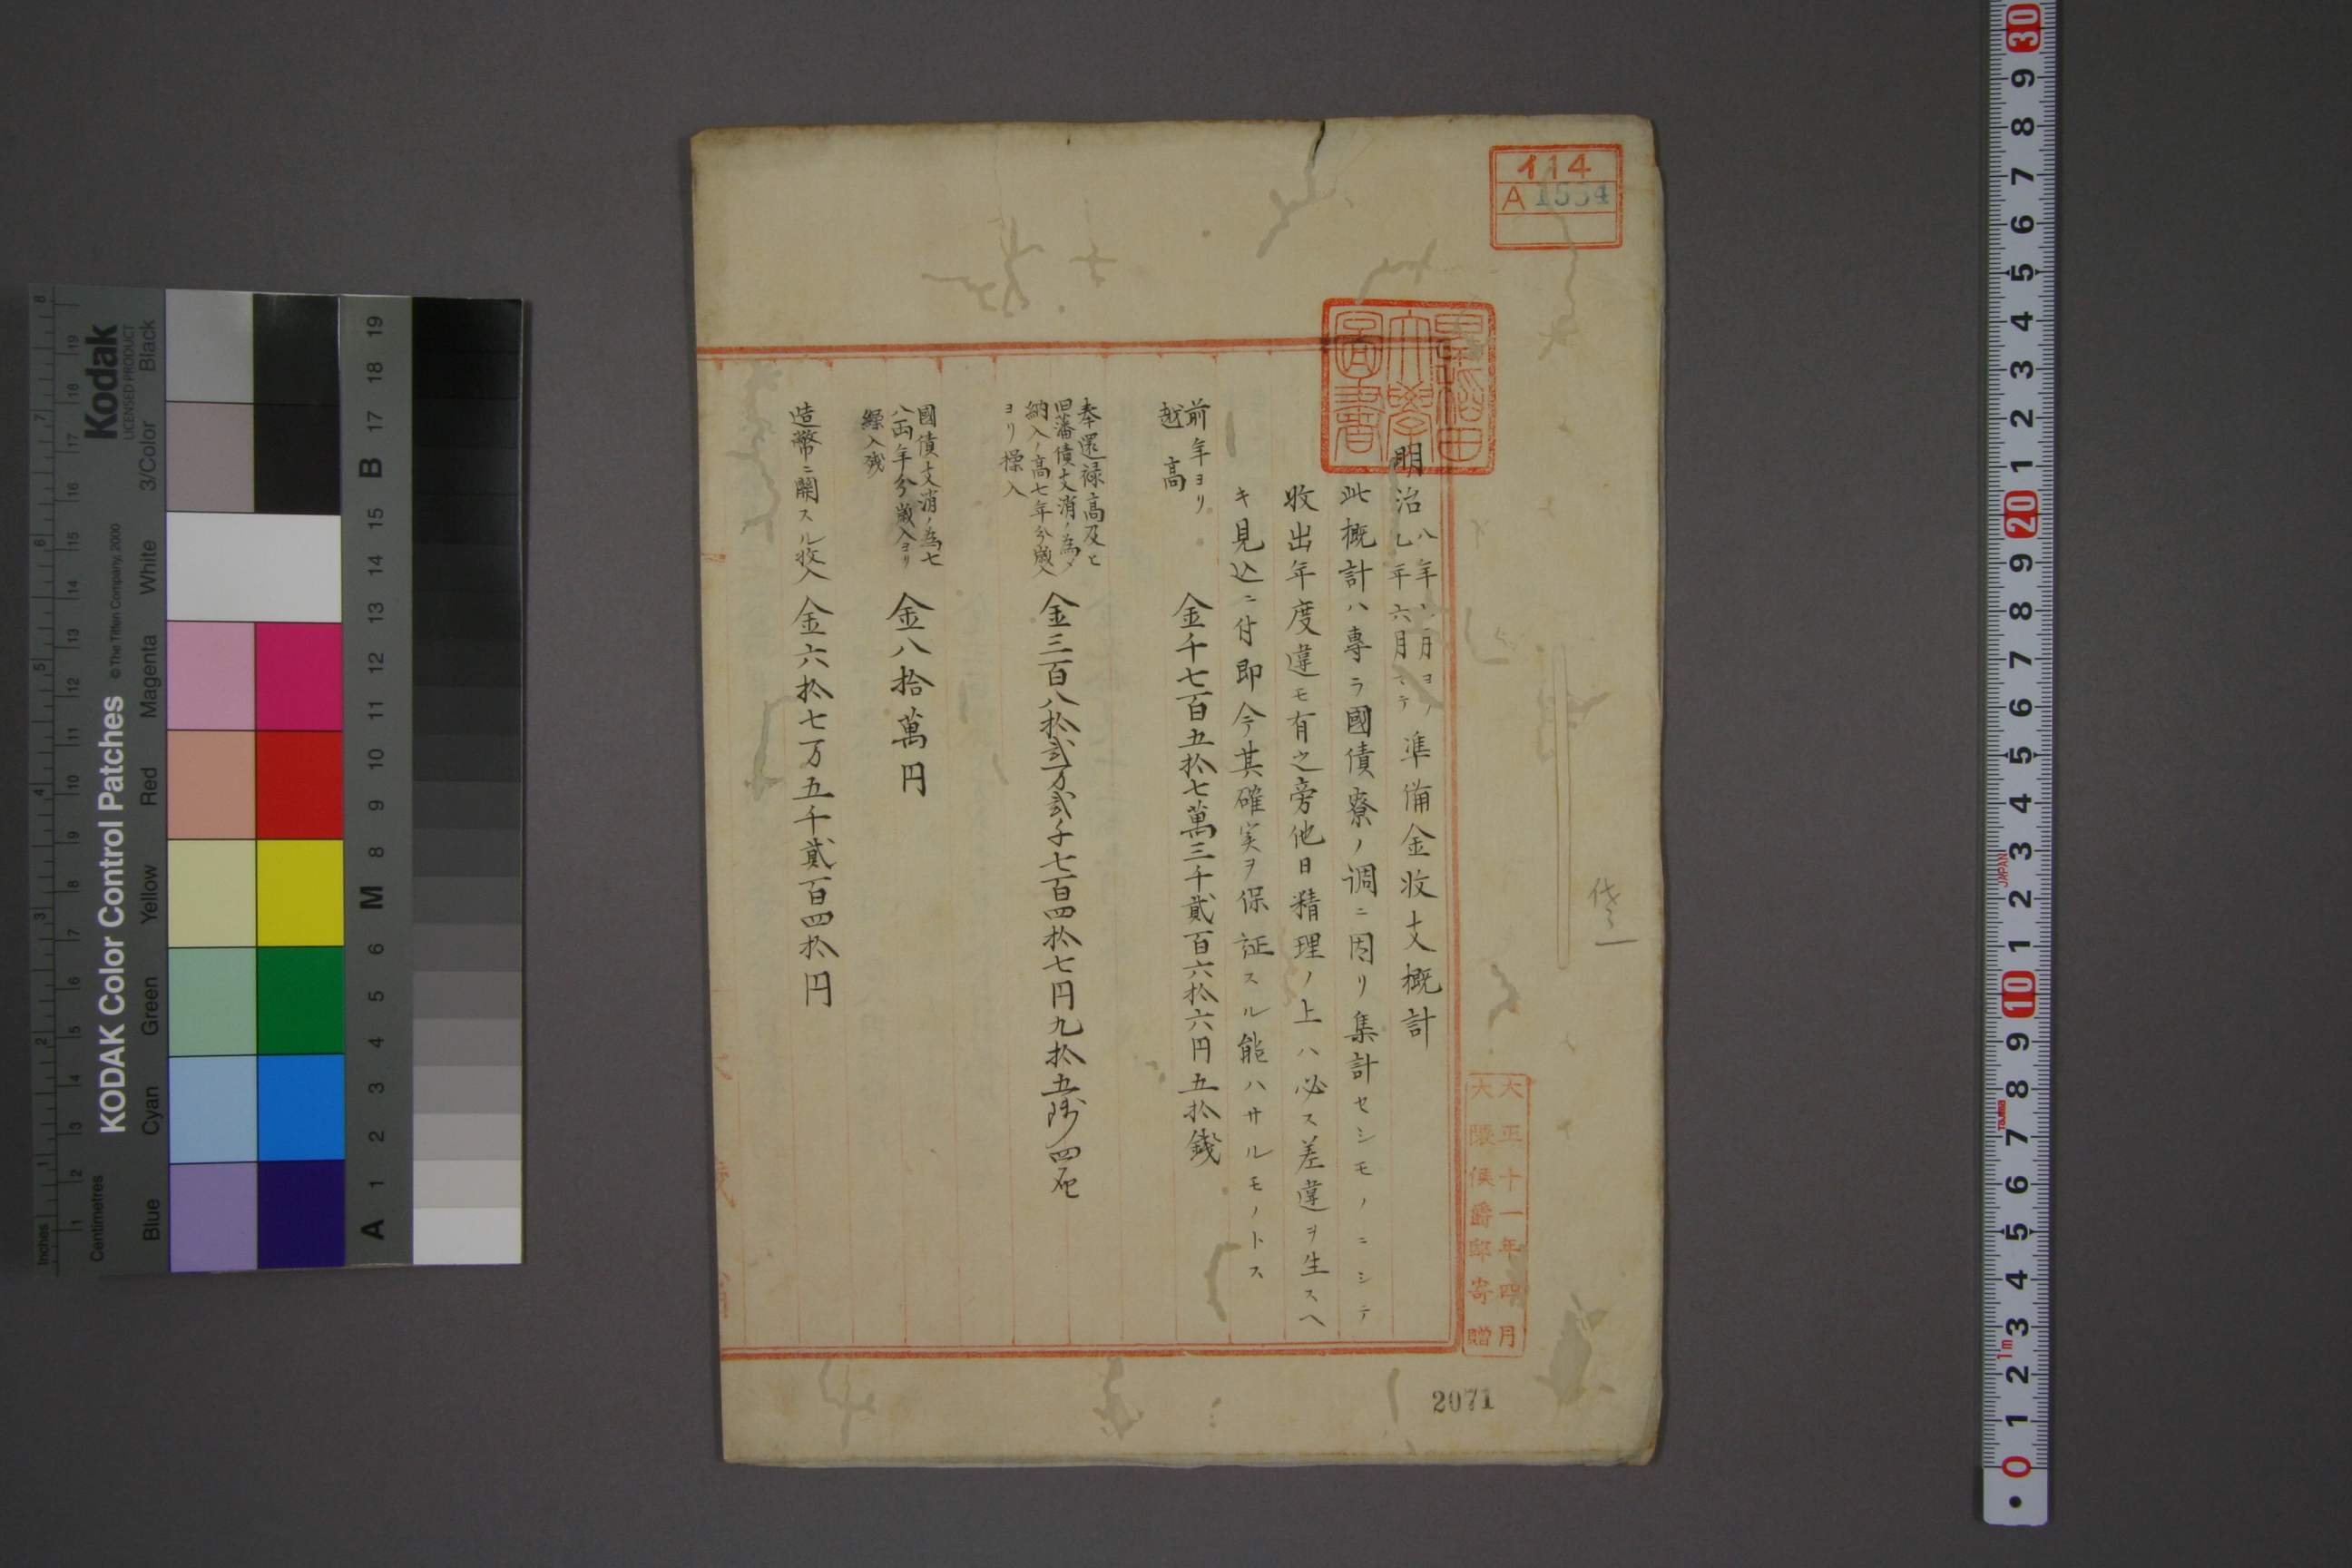 イ14
A 1554
早稲田大學圖書
明治八年一月ヨリ
七年六月マテ
準備金收支概計
此概計ハ専ラ國債寮ノ調ニ因リ集計セシモノニシテ
收出年度違モ有之旁他日精理ノ上ハ必ス差違ヲ生スヘ
キ見込ニ付即今其確実ヲ保証スル能ハサルモノトス
前年ヨリ
越高
金千七百五拾七萬三千貳百六拾六円五拾錢
奉還禄高及ヒ
旧藩債支消ノ為メ
納入ノ高七年分歳入
ヨリ操入
金三百八拾弐万弐千七百四拾七円九拾五銭四厘
國債支消ノ為七
八両年分歳入ヨリ
繰入残
金八拾萬円
造幣ニ関スル收入
金六拾七万五千貳百四拾円
大正十一年四月
大隈侯爵邸寄贈
2071
Kodak
LICENSED PRODUCT
KODAK Color Control Patches
© The Tiffen Company, 2000
Inches
Centimetres
Blue
Cyan
Green
Yellow
Red
Magenta
White
3/Color
Black
A 1 2 3 4 5 6 M 8 9 10 11 12 13 14 15 B 17 18 19
JAPAN
Tajima
1m